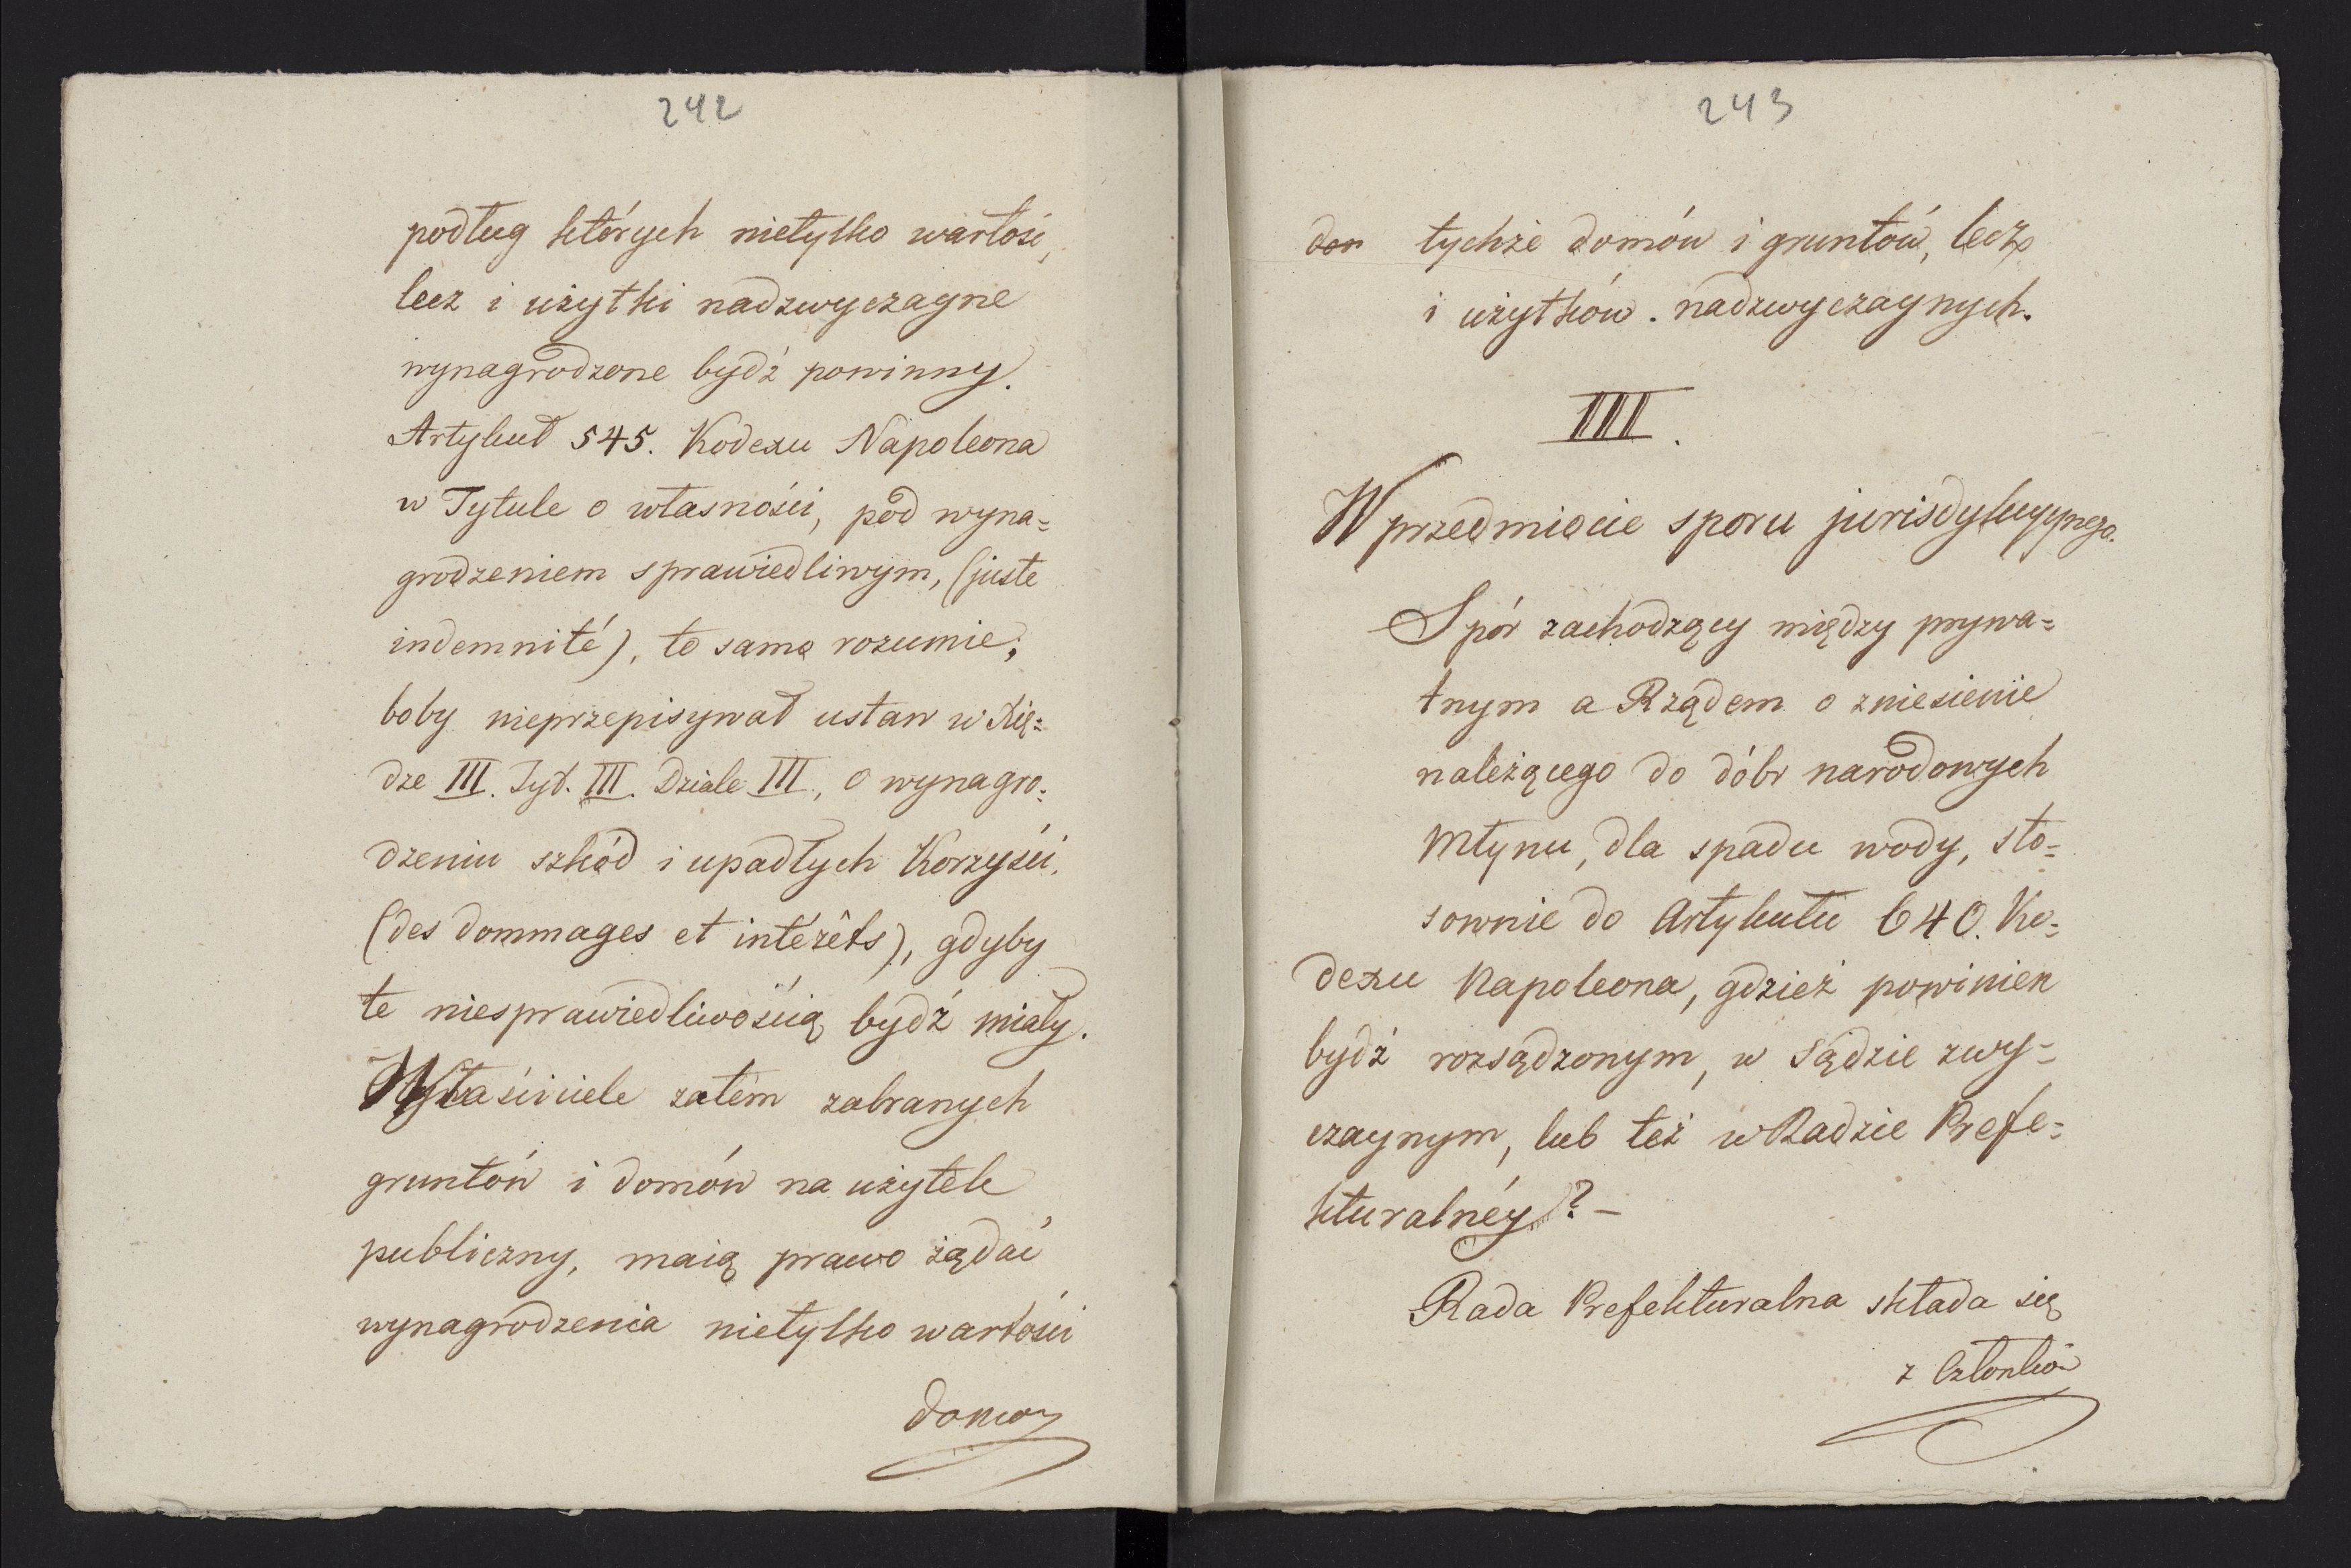 242
podług których nietylko wartość,
lecz i użytki nadzwyczayne
wynagrodzone bydź powinny.
Artykuł 545. Kodexu Napoleona
w Tytule o własności, pod wyna=
grodzeniem sprawiedliwym, (juste
indemnité), to samo rozumie;
boby nieprzepisywał ustaw w Xię=
dze III. Tyt. III. Dziale III., o wynagro=
dzeniu szkód i upadłych Korzyści,
(des dommages et intérêts), gdyby
te niesprawiedliwością bydź miały.
Właściciele zatém zabranych
gruntów i domów na użytek
publiczny, maią prawo żądać
wynagrodzenia nietylko wartości
domów
243
dom tychże domów i gruntów, lecz
i użytków nadzwyczaynych.
III.
W przedmiocie sporu jurisdykcyynego.
Spór zachodzący między prywa=
tnym a Rządem o zniesienie
należącego do dóbr narodowych
Młynu, dla spadu wody, sto=
sownie do Artykułu 640. Ko=
dexu Napoleona, gdzież powinien
bydź rozsądzonym, w Sądzie zwy=
czaynym, lub też w Radzie Prefe=
kturalnéy? –
Rada Prefekturalna składa się
z Członków